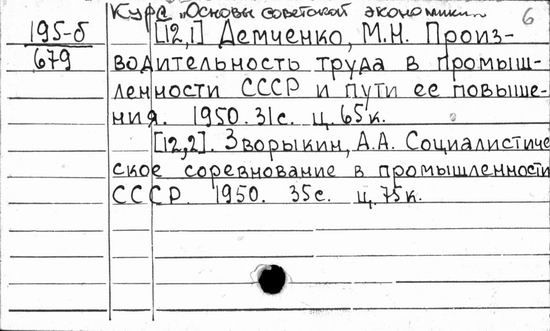 Курс „Основы советской экономики"
6
195-б
679
[12,1] Демченко, М.Н. Произ-
водительность труда в промыш-
ленности СССР и пути ее повыше-
ния. 1950. 31с. ц. 65к.
[12,2]. Зворыкин, А.А. Социалистиче
ское соревнование в промышленности
СССР. 1950. 35с. ц. 75к.